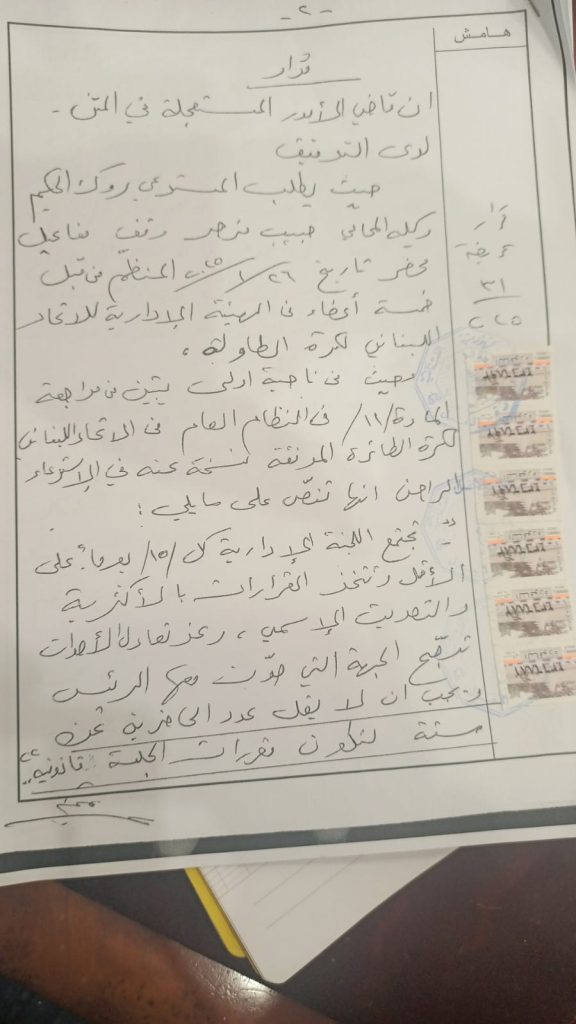 - ٢ -
هامش
قرار
ان قاضي الأمور المستعجلة في المتن -
لدى التدقيق
حيث يطلب المستدعي بروك الحكيم
وكيله المحامي حبيب وقف مفاعيل
محضر تاريخ ٢٦/١/٢٠٢٥ المنظم من قبل
خمسة أعضاء في الهيئة الإدارية للاتحاد
اللبناني لكرة الطاولة،
وحيث من ناحية اولى يتبين من مراجعة
المادة /١١/ من النظام العام في الاتحاد اللبناني
لكرة الطائرة المرفقة نسخة عنه في الاستدعاء
الراهن انها تنص على ما يلي:
تجتمع اللجنة الإدارية كل /١٥/ يوماً على
الأقل وتتخذ القرارات بالأكثرية
والتصويت الإسمي، وعند تعادل الأصوات
ترجّح الجهة التي صوّت معها الرئيس
ويجب ان لا يقل عدد الحاضرين عن
ستة لتكون مقررات الجلسة قانونية"
٣١
٢٠٢٥